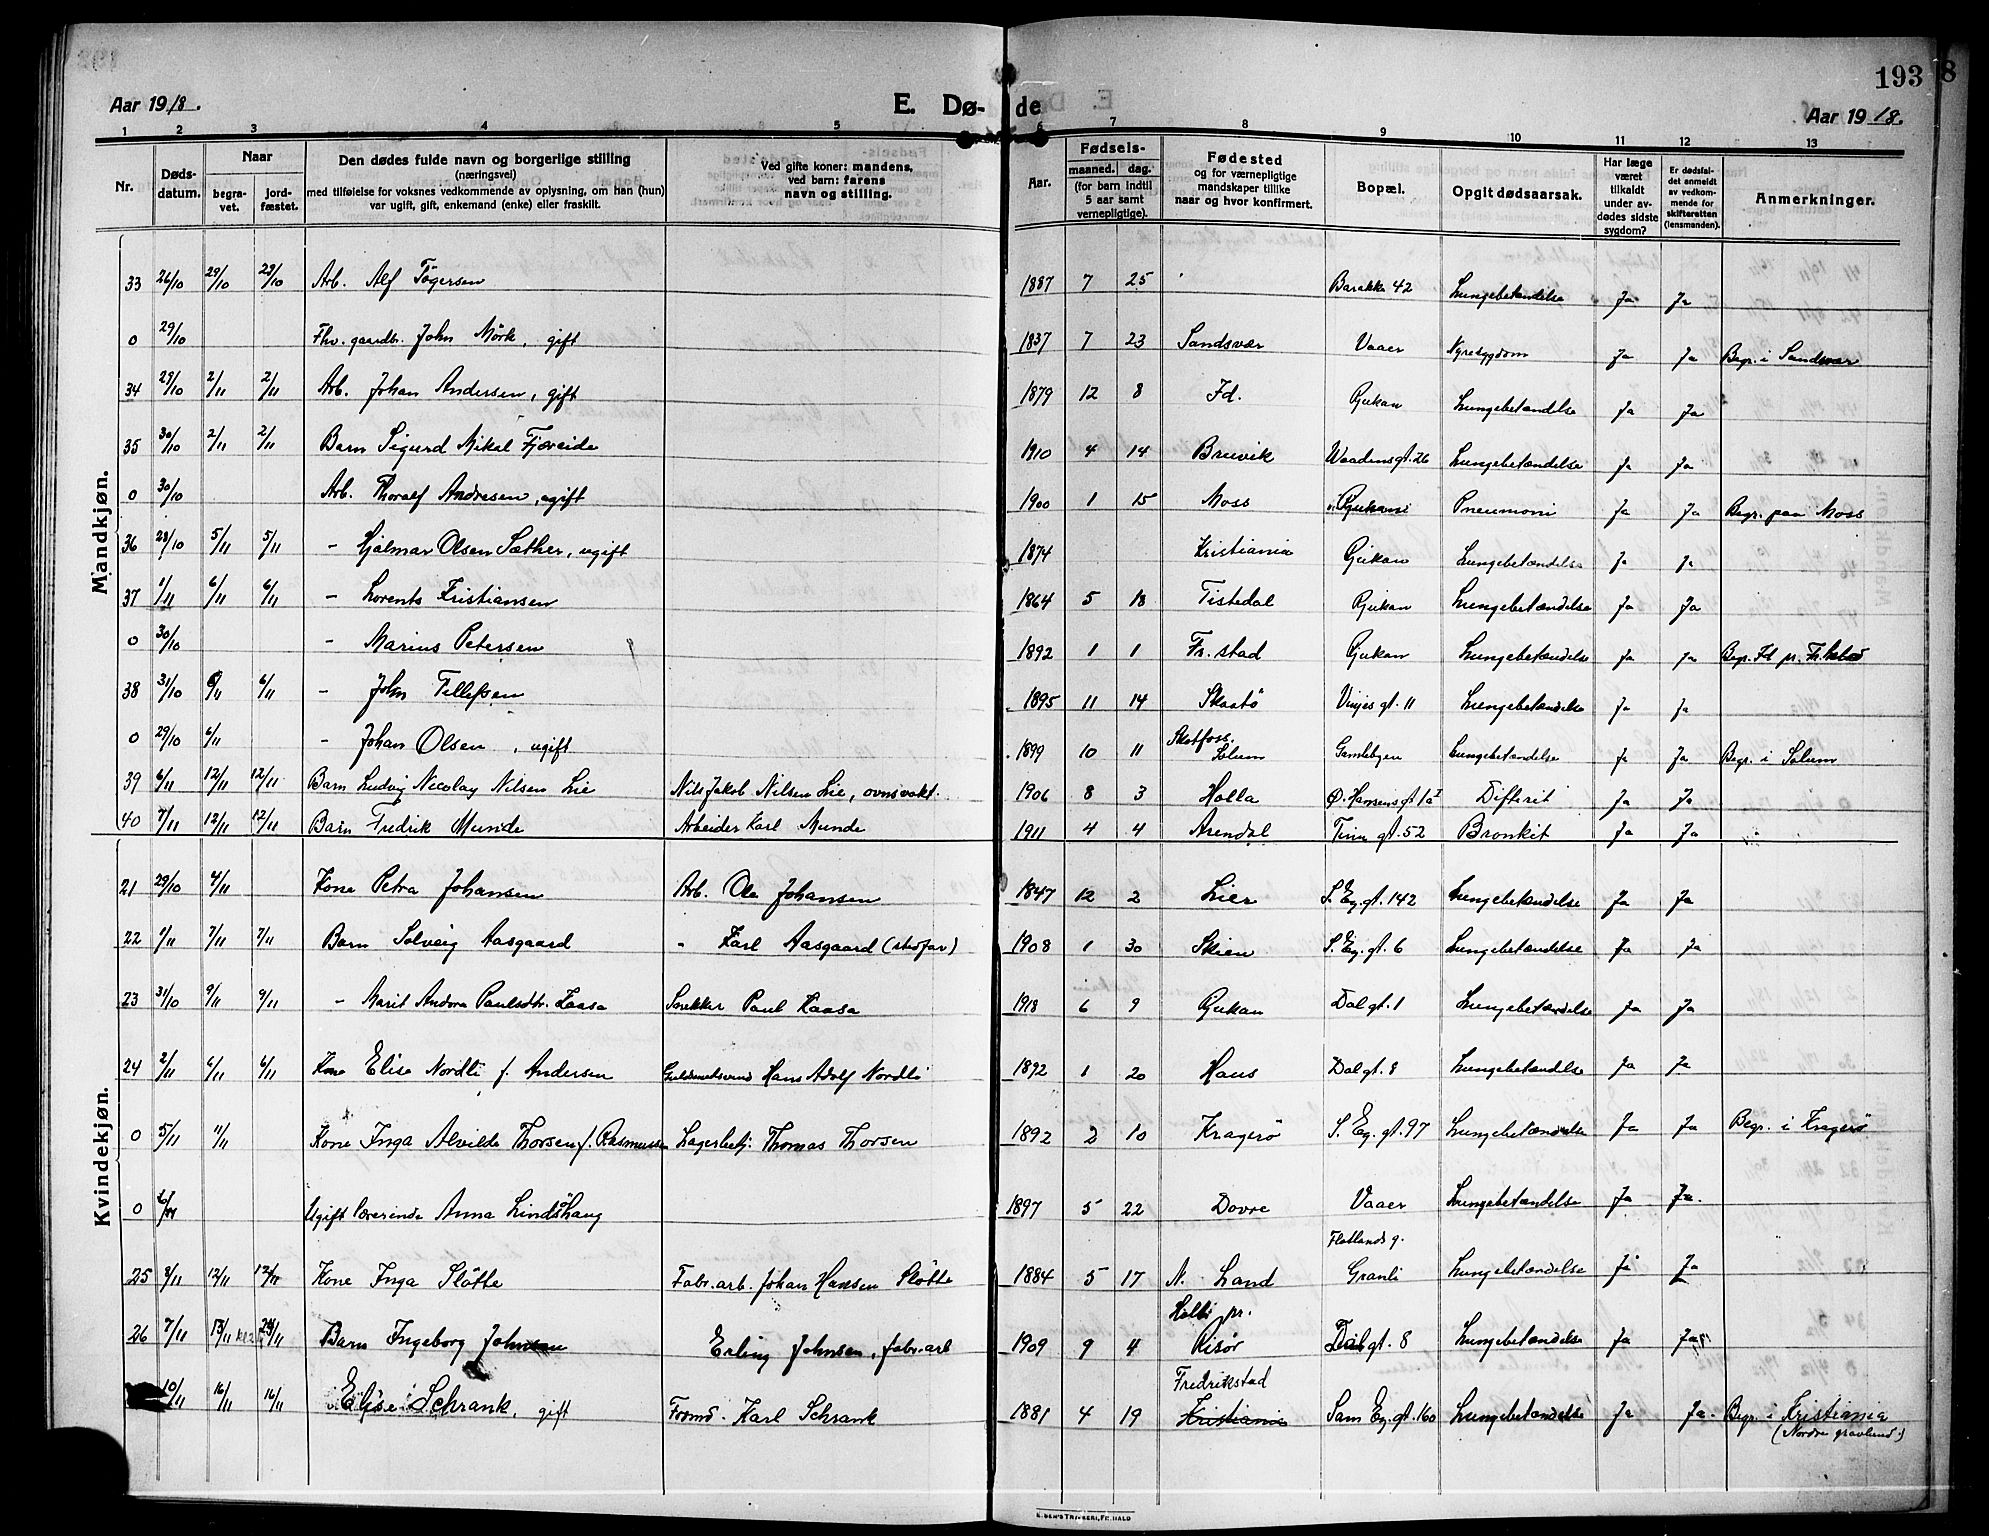 193
Aar 1918.
E. Dø-
de
Aar 1918.
1 2 3 4 5 6 7 8 9 10 11 12 13
Nr.
Døds-
datum.
Naar
begra-
vet.
jord-
fæstet.
Den dødes fulde navn og borgerlige stilling
(næringsvei)
med tilføielse for voksnes vedkommende av oplysning, om han (hun)
var ugift, gift, enkemand (enke) eller fraskilt.
Ved gifte koner: mandens,
ved barn: farens
navn og stilling.
Aar.
Fødsels-
maaned. dag.
(for barn indtil
5 aar samt
vernepligtige).
Fødested
og for værnepligtige
mandskaper tillike
naar og hvor konfirmert.
Bopæl.
Opgit dødsaarsak.
Har læge
været
tilkaldt
under av-
dødes sidste
sygdom?
Er dødsfal-
det anmeldt
av vedkom-
mende for
skifteretten
(lensmanden).
Anmerkninger.
Mandkjøn.
33 26/10 29/10 29/10 Arb. Alf Tøgersen 1887 7 25 Barakke 42 Lungebetændelse Ja Ja
0 29/10 Fhv. gaardbr. John Mörk, gift 1837 7 23 Sandsvær Vaaer Nyresygdom Ja Ja Begr. i Sandsvær
34 29/10 2/11 2/11 Arb. Johan Andersen, gift 1879 12 8 Id. Rjukan Lungebetændelse Ja Ja
35 30/10 2/11 2/11 Barn Sigurd Mikal Fjæreide 1910 4 14 Bruvik Waadensgt. 26 Lungebetændelse Ja Ja
0 30/10 Arb. Thoralf Andresen, ugift 1900 1 15 Moss Rjukan Pneumoni Ja Ja Begr. paa Moss
36 28/10 5/11 5/11 - Hjalmar Olsen Sæther, ugift 1874 Kristiania Rjukan Lungebetændelse Ja Ja
37 1/11 6/11 6/11 - Lorents Kristiansen 1864 5 18 Tistedal Rjukan Lungebetændelse Ja Ja
0 30/10 - Marius Petersen 1892 1 1 Fr.stad Rjukan Lungebetændelse Ja Ja Begr. Id pr. Fr.hald
38 31/10 6/11 6/11 - John Tellefsen 1895 11 14 Skaatö Vinjes gt. 11 Lungebetændelse Ja Ja
0 29/10 6/11 - Johan Olsen, ugift 1899 10 11 Skotfoss. Solum Gamlebyen Lungebetændelse Ja Ja Begr. i Solum
39 6/11 12/11 12/11 Barn Ludvig Nicolay Nilsen Lie Nils Jakob Nilsen Lie, ovnsvakt. 1906 8 3 Holla Ø. Hansensgt. 1a I Difterit Ja Ja
40 7/11 12/11 12/11 Barn Fredrik Munde Arbeider Karl Munde 1911 4 4 Arendal Tinn gt. 52 Bronkit Ja Ja
Kvindekjøn.
21 29/10 4/11 Kone Petra Johansen Arb. Ole Johansen 1847 12 2 Lier S. Eg. gt. 142 Lungebetændelse Ja Ja
22 1/11 7/11 7/11 Barn Solveig Aasgaard " Karl Aasgaard (stedfar) 1908 1 30 Skien S. Eg. gt. 6 Lungebetændelse Ja Ja
23 31/10 9/11 9/11 - Marit Andora Paulsdtr. Kaasa Snekker Paul Kaasa 1918 6 9 Rjukan Dal gt. 1 Lungebetændelse Ja Ja
24 2/11 6/11 6/11 Kone Elise Nordli f. Andersen Guldsmedsvend Hans Adolf Nordli 1892 1 20 Haus Dal gt. 8 Lungebetændelse Ja Ja
0 5/11 11/11 Kone Inga Alvilde Thorsen f. Rasmussen Lagerbetj. Thomas Thorsen 1892 2 10 Kragerö S. Eg. gt. 97 Lungebetændelse Ja Ja Begr. i Kragerö
0 Ugift Lærerinde Anna Lindshaug 1897 5 22 Dovre Vaaer Lungebetændelse Ja Ja.
25 8/11 12/11 12/11 Kone Inga Slötte Fabr. arb. Johan Hansen Slötte 1884 5 17 N. Land Flatlands g. Granli Lungebetændelse Ja Ja
26 7/11 13/11 Barn Ingeborg Johnsen Erling Johnsen, fabr. arb 1909 9 4 pr. Risör Dal gt. 8 Lungebetændelse Ja Ja
10/11 16/11 16/11 Elise Schrank, gift Formd. Karl Schrank 1881 4 19 Fredrikstad Kristiania Sam Eg. gt. 160 Lungebetændelse Ja Ja. Begr. i Kristiania
(Nordre gravlund.)